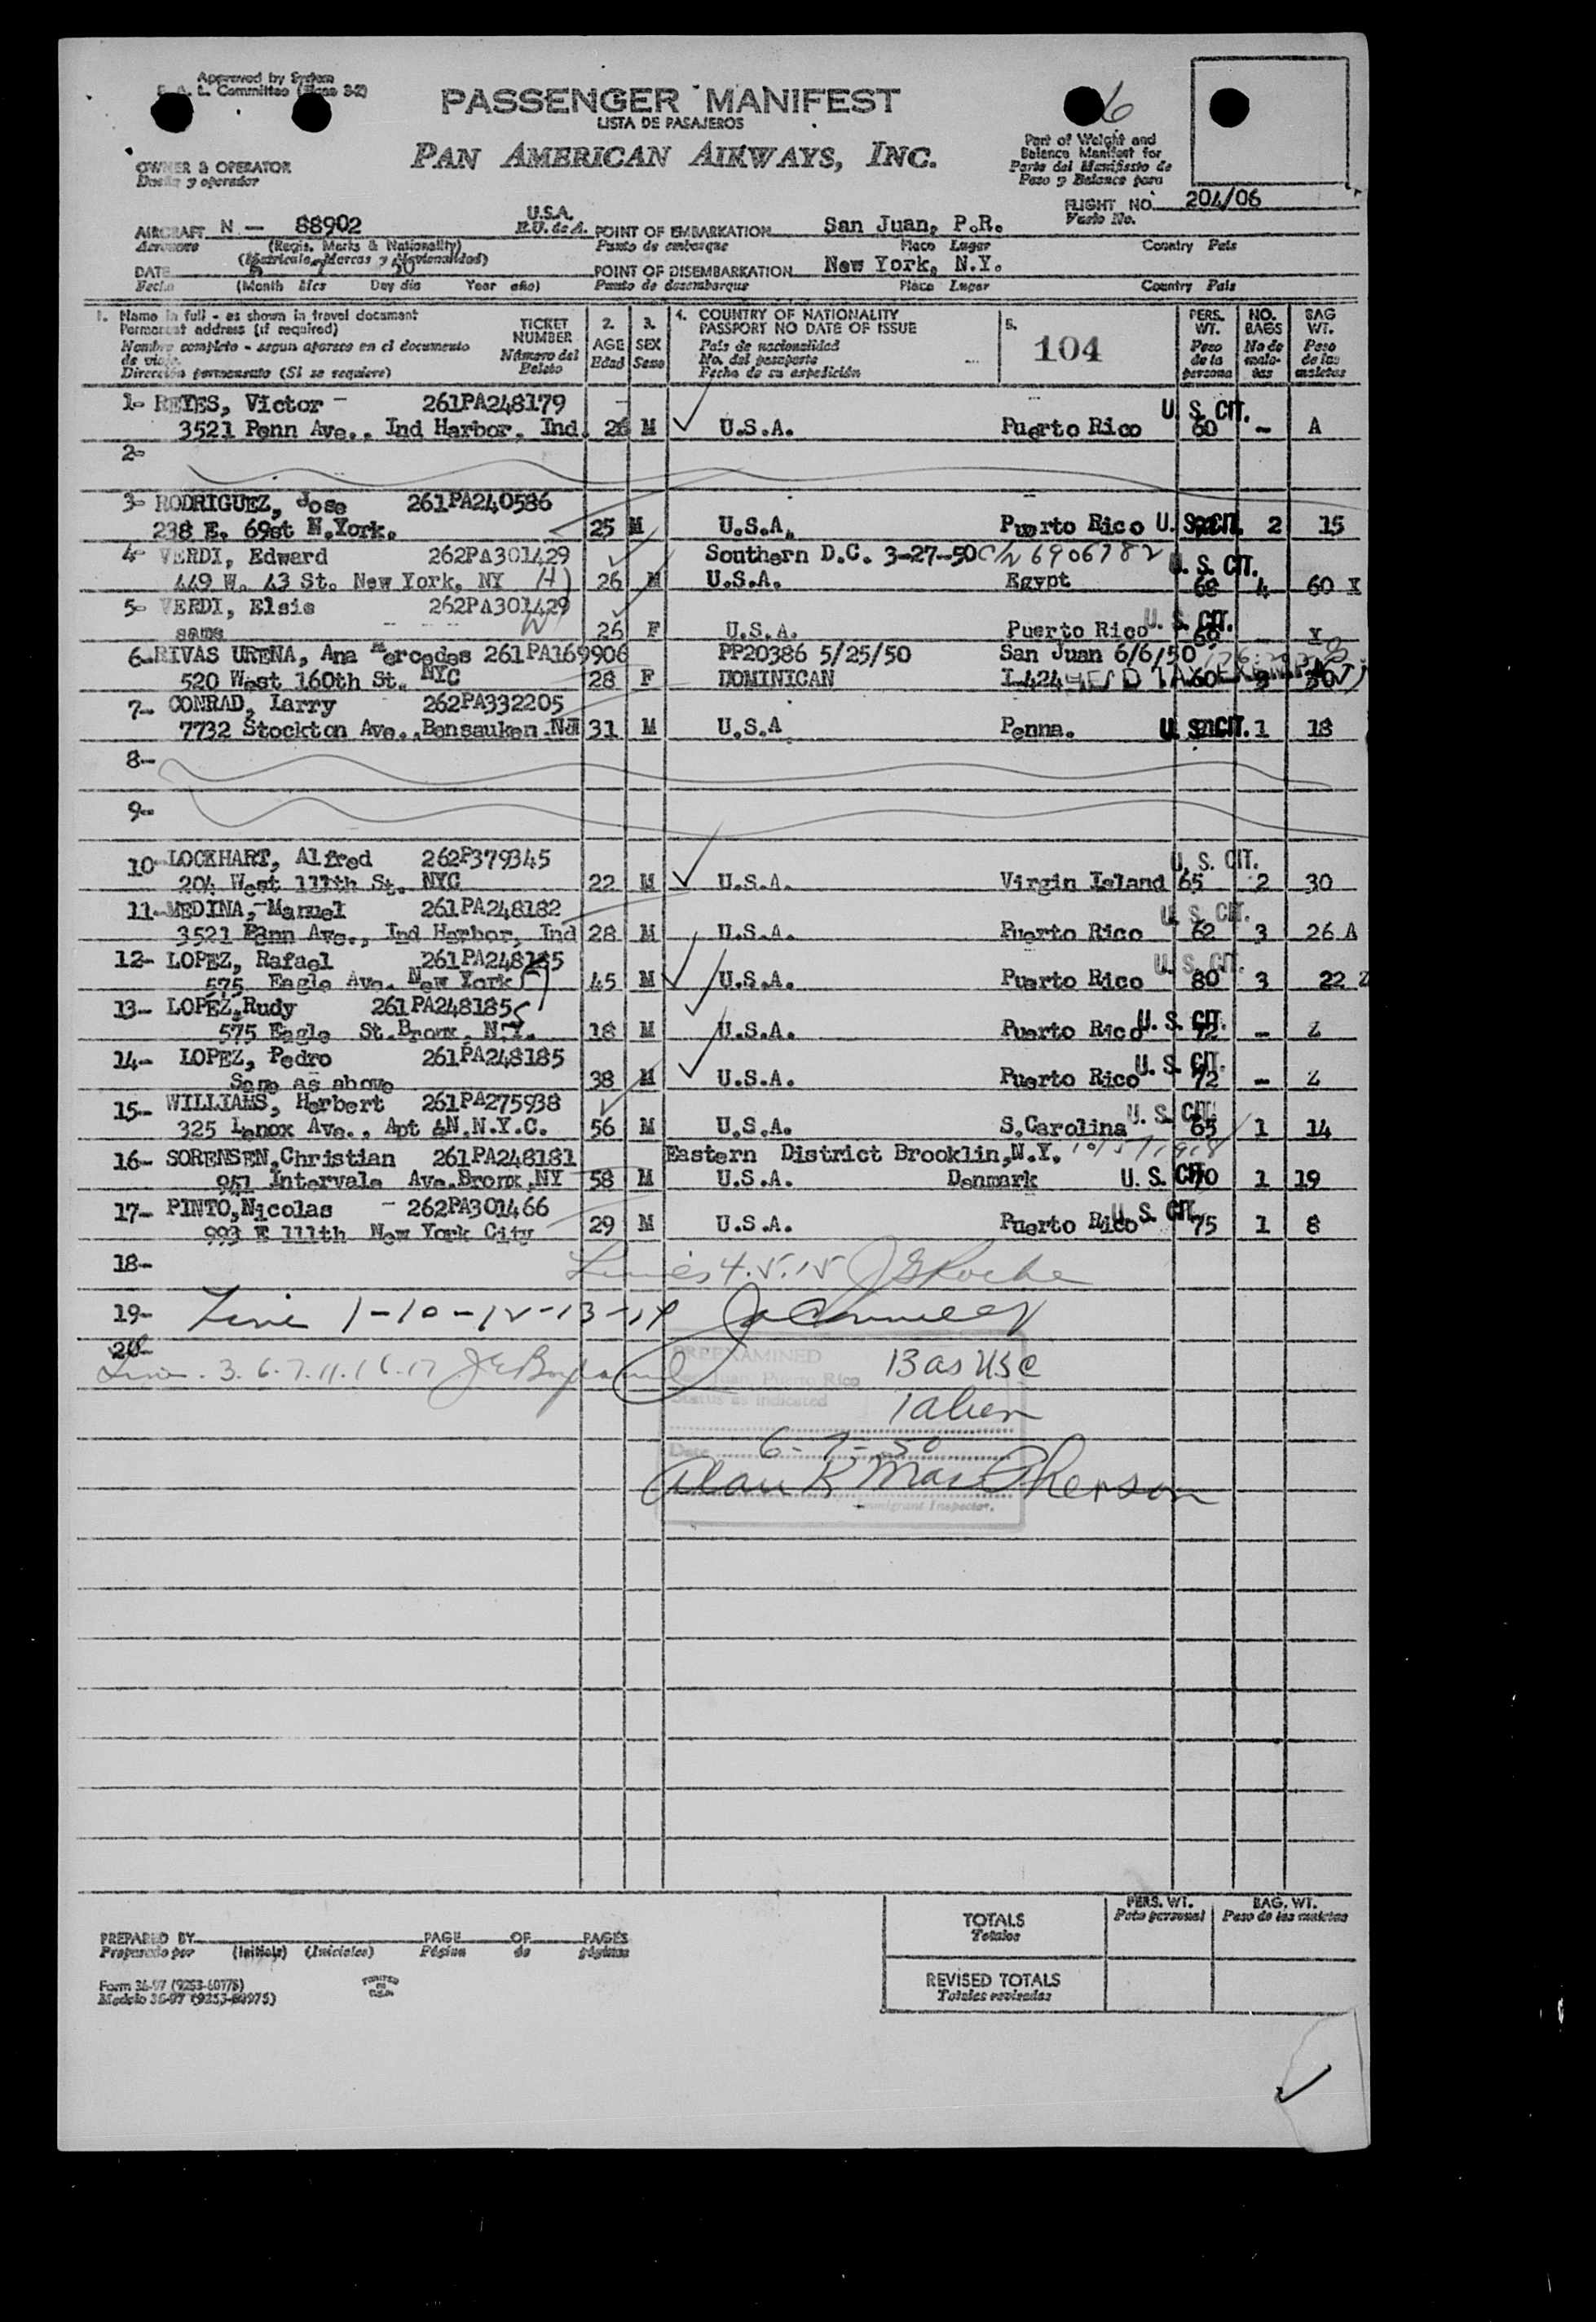 Approved by System
F. A. L. Committee
PASSENGER MANIFEST
LISTA DE PASAJEROS
PAN AMERICAN AIRWAYS, INC.
6
OWNER & OPERATOR
Dueño y operador
Part of Weight and
Balance Manifest for
Parte del Manifiesto de
Peso y Balance para
FLIGHT NO. 204/06
Vuelo No.
AIRCRAFT N - 88902 U.S.A. E.U. de A.
Aeronave (Regis. Marks & Nationality)
(Matricula, Marcas y Nacionalidad)
POINT OF EMBARKATION San Juan, P.R.
Punto de embarque Place Lugar Country Pais
DATE 6 7 50
Fecha (Month Mes Day dia Year año)
POINT OF DISEMBARKATION New York, N.Y.
Punto de desembarque Place Lugar Country Pais
1. Name in full - as shown in travel document
Permanent address (if required)
Nombre completo - segun aparece en el documento
de viaje.
Dirección permanente (Si se requiere)
TICKET NUMBER
Número del Boleto
2. AGE Edad
3. SEX Sexo
4. COUNTRY OF NATIONALITY
PASSPORT NO DATE OF ISSUE
Pais de nacionalidad
No. del pasaporte
Fecha de su expedición
5. 104
PERS. WT. Peso de la persona
NO. BAGS No de maletas
BAG WT. Peso de las maletas
1- REYES, Victor - 261PA248179 U. S. CIT.
3521 Penn Ave., Ind Harbor, Ind. 26 M U.S.A. Puerto Rico 60 - A
2-
3- RODRIGUEZ, Jose 261PA240586
238 E. 69st N.York. 25 M U.S.A. Puerto Rico U. S. CIT. 2 15
4- VERDI, Edward 262PA301429 Southern D.C. 3-27-50 C/N 6906782 U. S. CIT.
449 W. 43 St. New York, NY (H) 26 M U.S.A. Egypt 68 4 60 X
5- VERDI, Elsie 262PA301429 U. S. CIT.
same W 26 F U.S.A. Puerto Rico 60 X
6- RIVAS URENA, Ana Mercedes 261PA169906 PP20386 5/25/50 San Juan 6/6/50
520 West 160th St. NYC 28 F DOMINICAN I-424 60 3 30
7- CONRAD, Larry 262PA332205
7732 Stockton Ave., Pensauken NJ 31 M U.S.A Penna. U. S. CIT. 1 18
8-
9-
10- LOCKHART, Alfred 262P379345 U. S. CIT.
204 West 111th St. NYC 22 M U.S.A. Virgin Island 65 2 30
11- MEDINA, Manuel 261PA248182 U. S. CIT.
3521 Penn Ave., Ind Harbor, Ind 28 M U.S.A. Puerto Rico 62 3 26 A
12- LOPEZ, Rafael 261PA248185 U. S. CIT.
575 Eagle Ave. New York 45 M U.S.A. Puerto Rico 80 3 22 Z
13- LOPEZ, Rudy 261PA248185 U. S. CIT.
575 Eagle St. Bronx, N.Y. 18 M U.S.A. Puerto Rico 72 - Z
14- LOPEZ, Pedro 261PA248185 U. S. CIT.
Same as above 38 M U.S.A. Puerto Rico 72 - Z
15- WILLIAMS, Herbert 261PA275938 U. S. CIT.
325 Lenox Ave., Apt 4N.N.Y.C. 56 M U.S.A. S.Carolina 65 1 14
16- SORENSEN, Christian 261PA248181 Eastern District Brooklin, N.Y.
951 Intervale Ave. Bronx, NY 58 M U.S.A. Denmark U. S. CIT. 70 1 19
17- PINTO, Nicolas - 262PA301466 U. S. CIT.
993 E 111th New York City 29 M U.S.A. Puerto Rico 75 1 8
18- Lines 4.5.15 J G Roche
19- Line 1-10-12-13-14
20- Line. 3. 6. 7. 11. 16. 17
PREEXAMINED
San Juan, Puerto Rico 13 as USC
Status as indicated 1 alien
Date 6-7-50
Alan K MacPherson
Immigrant Inspector.
PREPARED BY PAGE OF PAGES
Preparado por (Initials) (Iniciales) Página de páginas
TOTALS
Totales
PERS. WT.
Peso personal
BAG. WT.
Peso de las maletas
REVISED TOTALS
Totales revisados
Form 36-97 (9253-60975)
Modelo 36-97 (9253-60975)
PRINTED IN U.S.A.